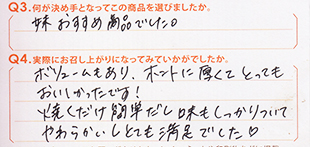 Q3.何が決め手となってこの商品を選びましたか。
妹おすすめ商品でした。
Q4.実際にお召し上がりになってみていかがでしたか。
ボリュームもあり、ホントに厚くてとっても
おいしかったです!
焼くだけ簡単だし味もしっかりついて
やわらかいしとても満足でした♡